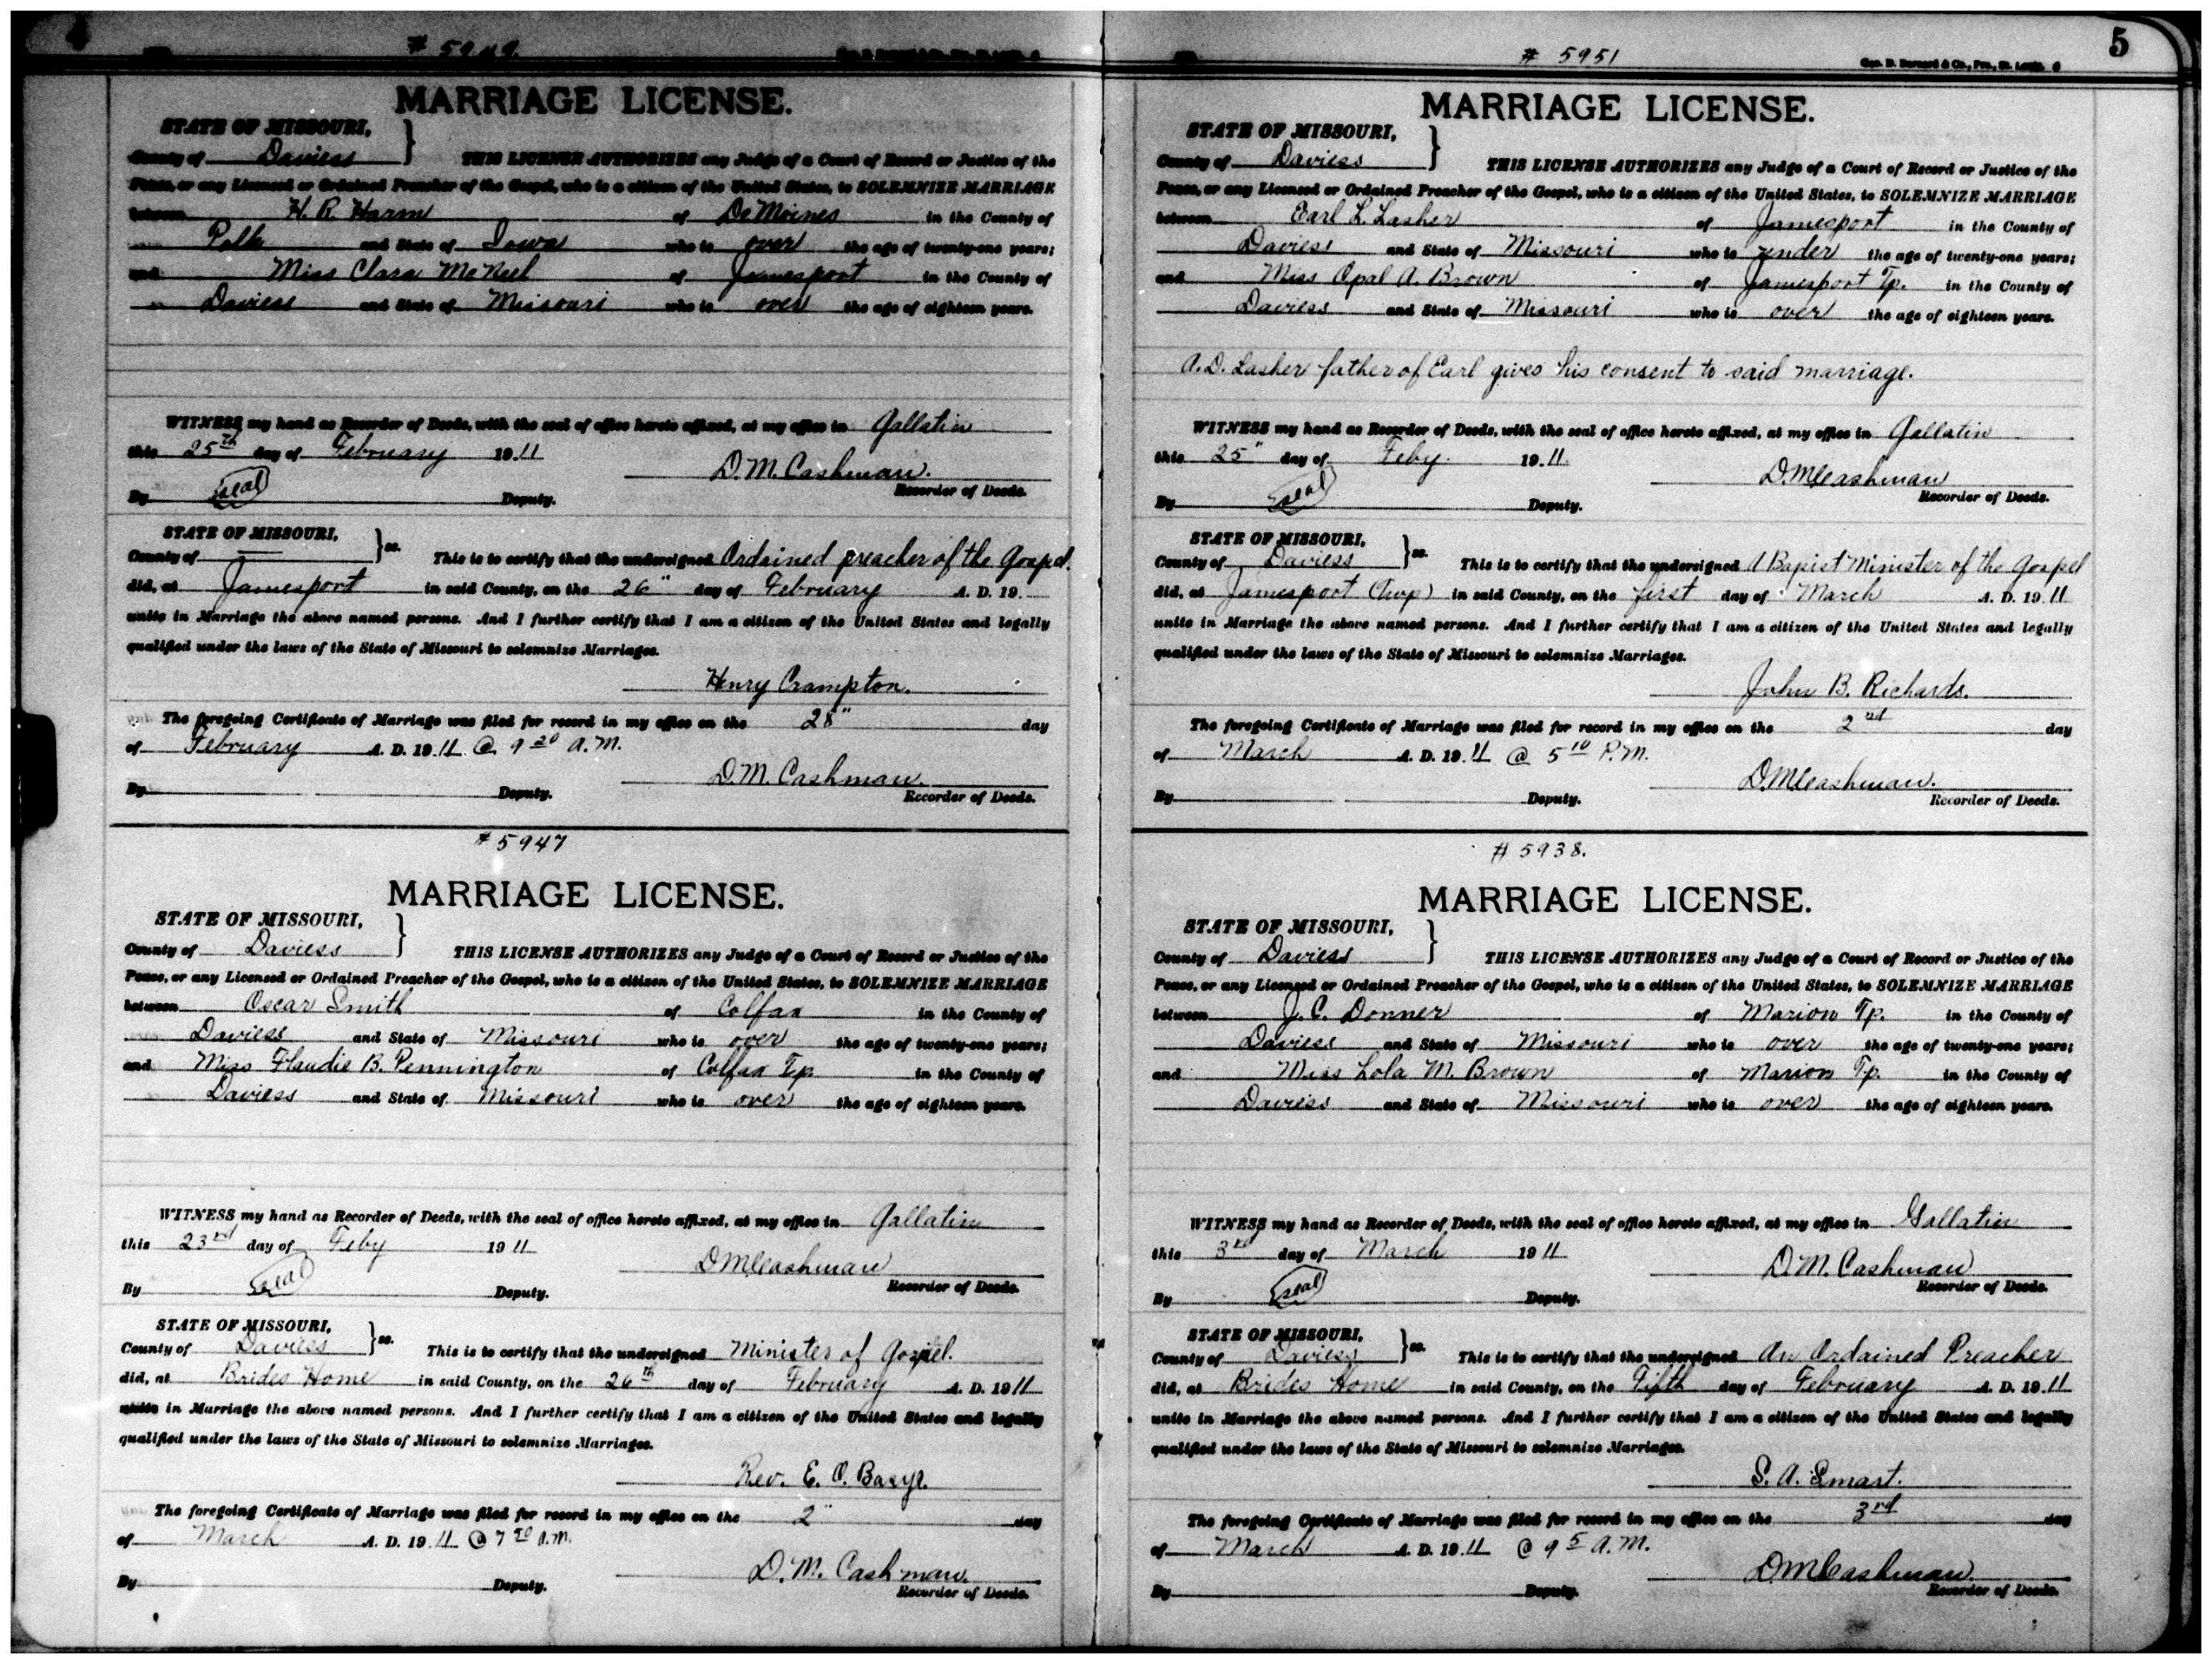 4
# 5949.
MARRIAGE LICENSE.
STATE OF MISSOURI,
County of Daviess } THIS LICENSE AUTHORIZES any Judge of a Court of Record or Justice of the
Peace, or any Licensed or Ordained Preacher of the Gospel, who is a citizen of the United States, to SOLEMNIZE MARRIAGE
between H. R. Harm of DeMoines in the County of
Polk and State of Iowa who is over the age of twenty-one years;
and Miss Clara McNiel of Jamesport in the County of
Daviess and State of Missouri who is over the age of eighteen years.
WITNESS my hand as Recorder of Deeds, with the seal of office hereto affixed, at my office in Gallatin
this 25th day of February 1911
D. M. Cashman.
By (seal) Deputy. Recorder of Deeds.
STATE OF MISSOURI,
County of — } ss. This is to certify that the undersigned Ordained preacher of the Gospel.
did, at Jamesport in said County, on the 26" day of February A. D. 19
unite in Marriage the above named persons. And I further certify that I am a citizen of the United States and legally
qualified under the laws of the State of Missouri to solemnize Marriages.
Henry Crampton.
The foregoing Certificate of Marriage was filed for record in my office on the 28" day
of February A. D. 1911 @ 9 20 A. M.
D. M. Cashman.
By Deputy. Recorder of Deeds.
# 5947
MARRIAGE LICENSE.
STATE OF MISSOURI,
County of Daviess } THIS LICENSE AUTHORIZES any Judge of a Court of Record or Justice of the
Peace, or any Licensed or Ordained Preacher of the Gospel, who is a citizen of the United States, to SOLEMNIZE MARRIAGE
between Oscar Smith of Colfax in the County of
Daviess and State of Missouri who is over the age of twenty-one years;
and Miss Flaudie B. Pennington of Colfax Tp in the County of
Daviess and State of Missouri who is over the age of eighteen years.
WITNESS my hand as Recorder of Deeds, with the seal of office hereto affixed, at my office in Gallatin
this 23rd day of Feby 1911
D M Cashman
By (seal) Deputy. Recorder of Deeds.
STATE OF MISSOURI,
County of Daviess } ss. This is to certify that the undersigned Minister of Gospel.
did, at Brides Home in said County, on the 26th day of February A. D. 1911
unite in Marriage the above named persons. And I further certify that I am a citizen of the United States and legally
qualified under the laws of the State of Missouri to solemnize Marriages.
Rev. E. O.
The foregoing Certificate of Marriage was filed for record in my office on the 2" day
of March A. D. 1911 @ 7 A. M.
D. M. Cashman.
By Deputy. Recorder of Deeds.
5
# 5951
Geo. D. Barnard & Co., Pro., St. Louis.
MARRIAGE LICENSE.
STATE OF MISSOURI,
County of Daviess } THIS LICENSE AUTHORIZES any Judge of a Court of Record or Justice of the
Peace, or any Licensed or Ordained Preacher of the Gospel, who is a citizen of the United States, to SOLEMNIZE MARRIAGE
between Earl L. Lasher of Jamesport in the County of
Daviess and State of Missouri who is under the age of twenty-one years;
and Miss Opal A. Brown of Jamesport Tp. in the County of
Daviess and State of Missouri who is over the age of eighteen years.
A. D. Lasher father of Earl gives his consent to said marriage.
WITNESS my hand as Recorder of Deeds, with the seal of office hereto affixed, at my office in Gallatin
this 25" day of Feby. 1911.
D. M Cashman
By (seal) Deputy. Recorder of Deeds.
STATE OF MISSOURI,
County of Daviess } ss. This is to certify that the undersigned A Bapist Minister of the Gospel
did, at Jamesport (Twp) in said County, on the first day of March A. D. 1911
unite in Marriage the above named persons. And I further certify that I am a citizen of the United States and legally
qualified under the laws of the State of Missouri to solemnize Marriages.
John B. Richards.
The foregoing Certificate of Marriage was filed for record in my office on the 2nd day
of March A. D. 1911 @ 5 10 P. M.
D. M Cashman.
By Deputy. Recorder of Deeds.
# 5938.
MARRIAGE LICENSE.
STATE OF MISSOURI,
County of Daviess } THIS LICENSE AUTHORIZES any Judge of a Court of Record or Justice of the
Peace, or any Licensed or Ordained Preacher of the Gospel, who is a citizen of the United States, to SOLEMNIZE MARRIAGE
between J. C. Donner of Marion Tp. in the County of
Daviess and State of Missouri who is over the age of twenty-one years;
and Miss Lola M. Brown of Marion Tp. in the County of
Daviess and State of Missouri who is over the age of eighteen years.
WITNESS my hand as Recorder of Deeds, with the seal of office hereto affixed, at my office in Gallatin
this 3rd day of March 1911
D. M. Cashman
By (seal) Deputy. Recorder of Deeds.
STATE OF MISSOURI,
County of Daviess } ss. This is to certify that the undersigned An Ordained Preacher
did, at Brides Home in said County, on the Fifth day of February A. D. 1911
unite in Marriage the above named persons. And I further certify that I am a citizen of the United States and legally
qualified under the laws of the State of Missouri to solemnize Marriages.
S. A. Smart.
The foregoing Certificate of Marriage was filed for record in my office on the 3rd day
of March A. D. 1911 @ 9 5 A. M.
D. M Cashman.
By Deputy. Recorder of Deeds.